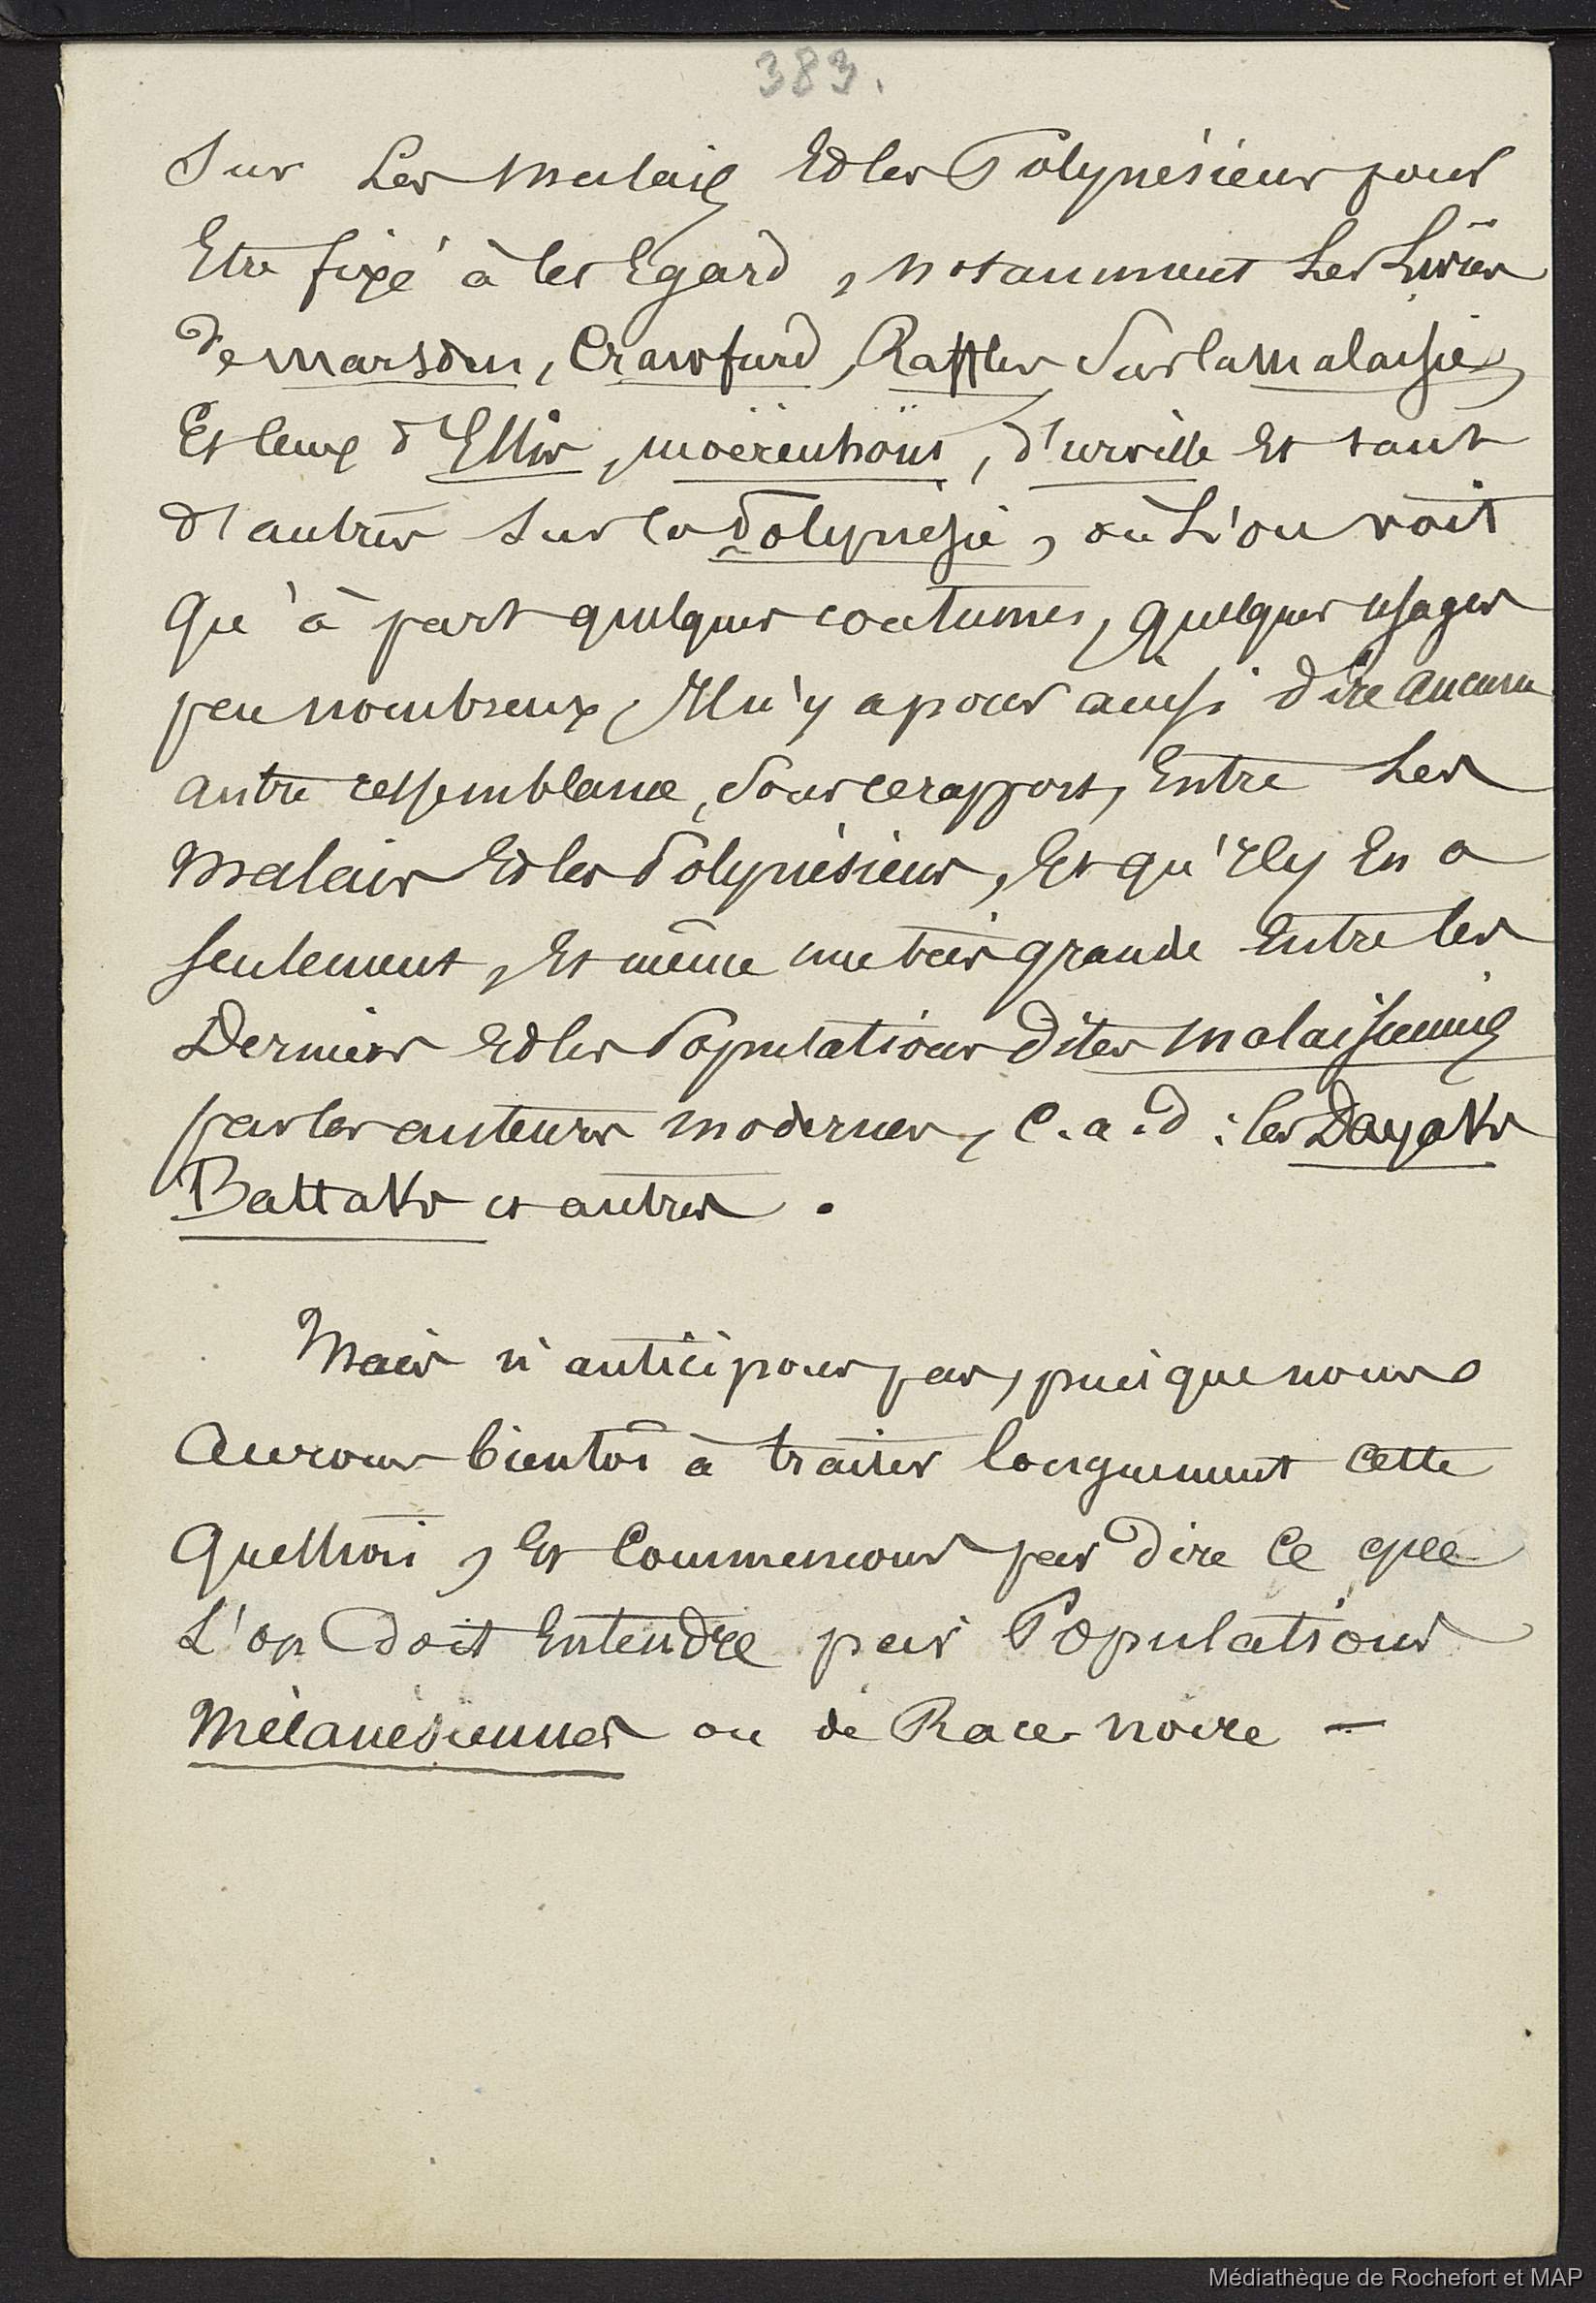 383.
Sur Les malais Et les Polynésiens pour
Etre fixé à cet Egard, notamment Les Livres
de marsden, Crawfurd, Raffles Sur la malaisie,
Et ceux d'Ellis, moërenhoüt, d'urville Et tant
d'autres Sur la Polynésie, où L'on voit
Qu'à part quelques coutumes, quelques usages
peu nombreux, Il n'y a pour ainsi dire aucune
autre ressemblance, Sous ce rapport, Entre Les
malais Et les Polynésiens, Et qu'Il y En a
seulement, Et même une très grande Entre les
Derniers Et les Populations Dites malaisiennes
par les auteurs modernes, C.a.d : les Dayaks
Battaks et autres.
Mais n'anticipons pas, puisque nous
Aurons bientôt à traiter longuement cette
Question, Et Commencons par dire Ce que
L'on Doit Entendre par Populations
Mélanésiennes ou de Race noire —
Médiathèque de Rochefort et MAP